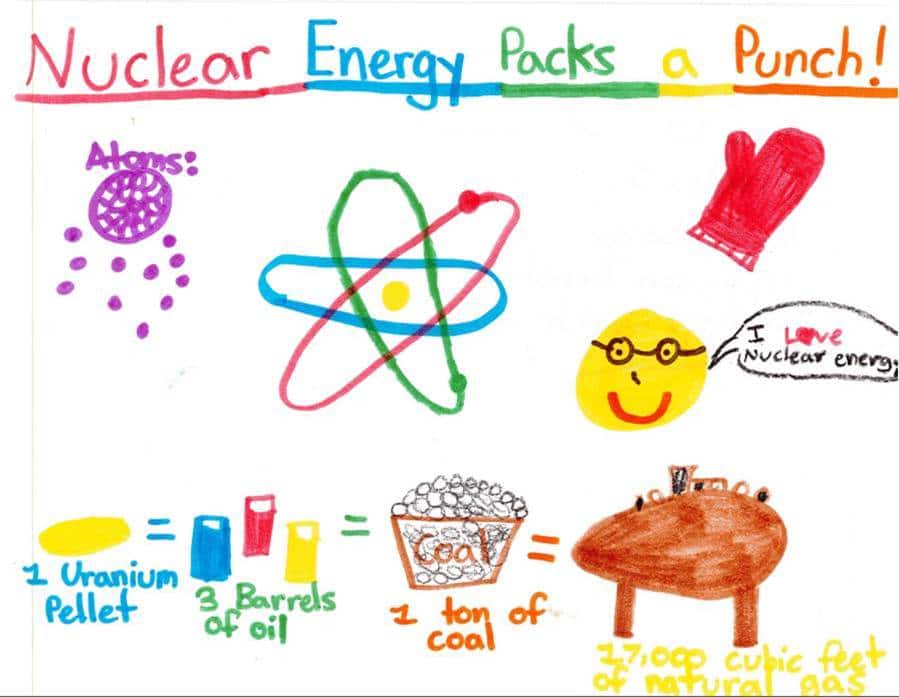 Nuclear Energy Packs a Punch!
Atoms:
I Love
Nuclear energy
= = =
Coal
1 Uranium
Pellet
3 Barrels
of oil
1 ton of
coal
17,000 cubic feet
of natural gas